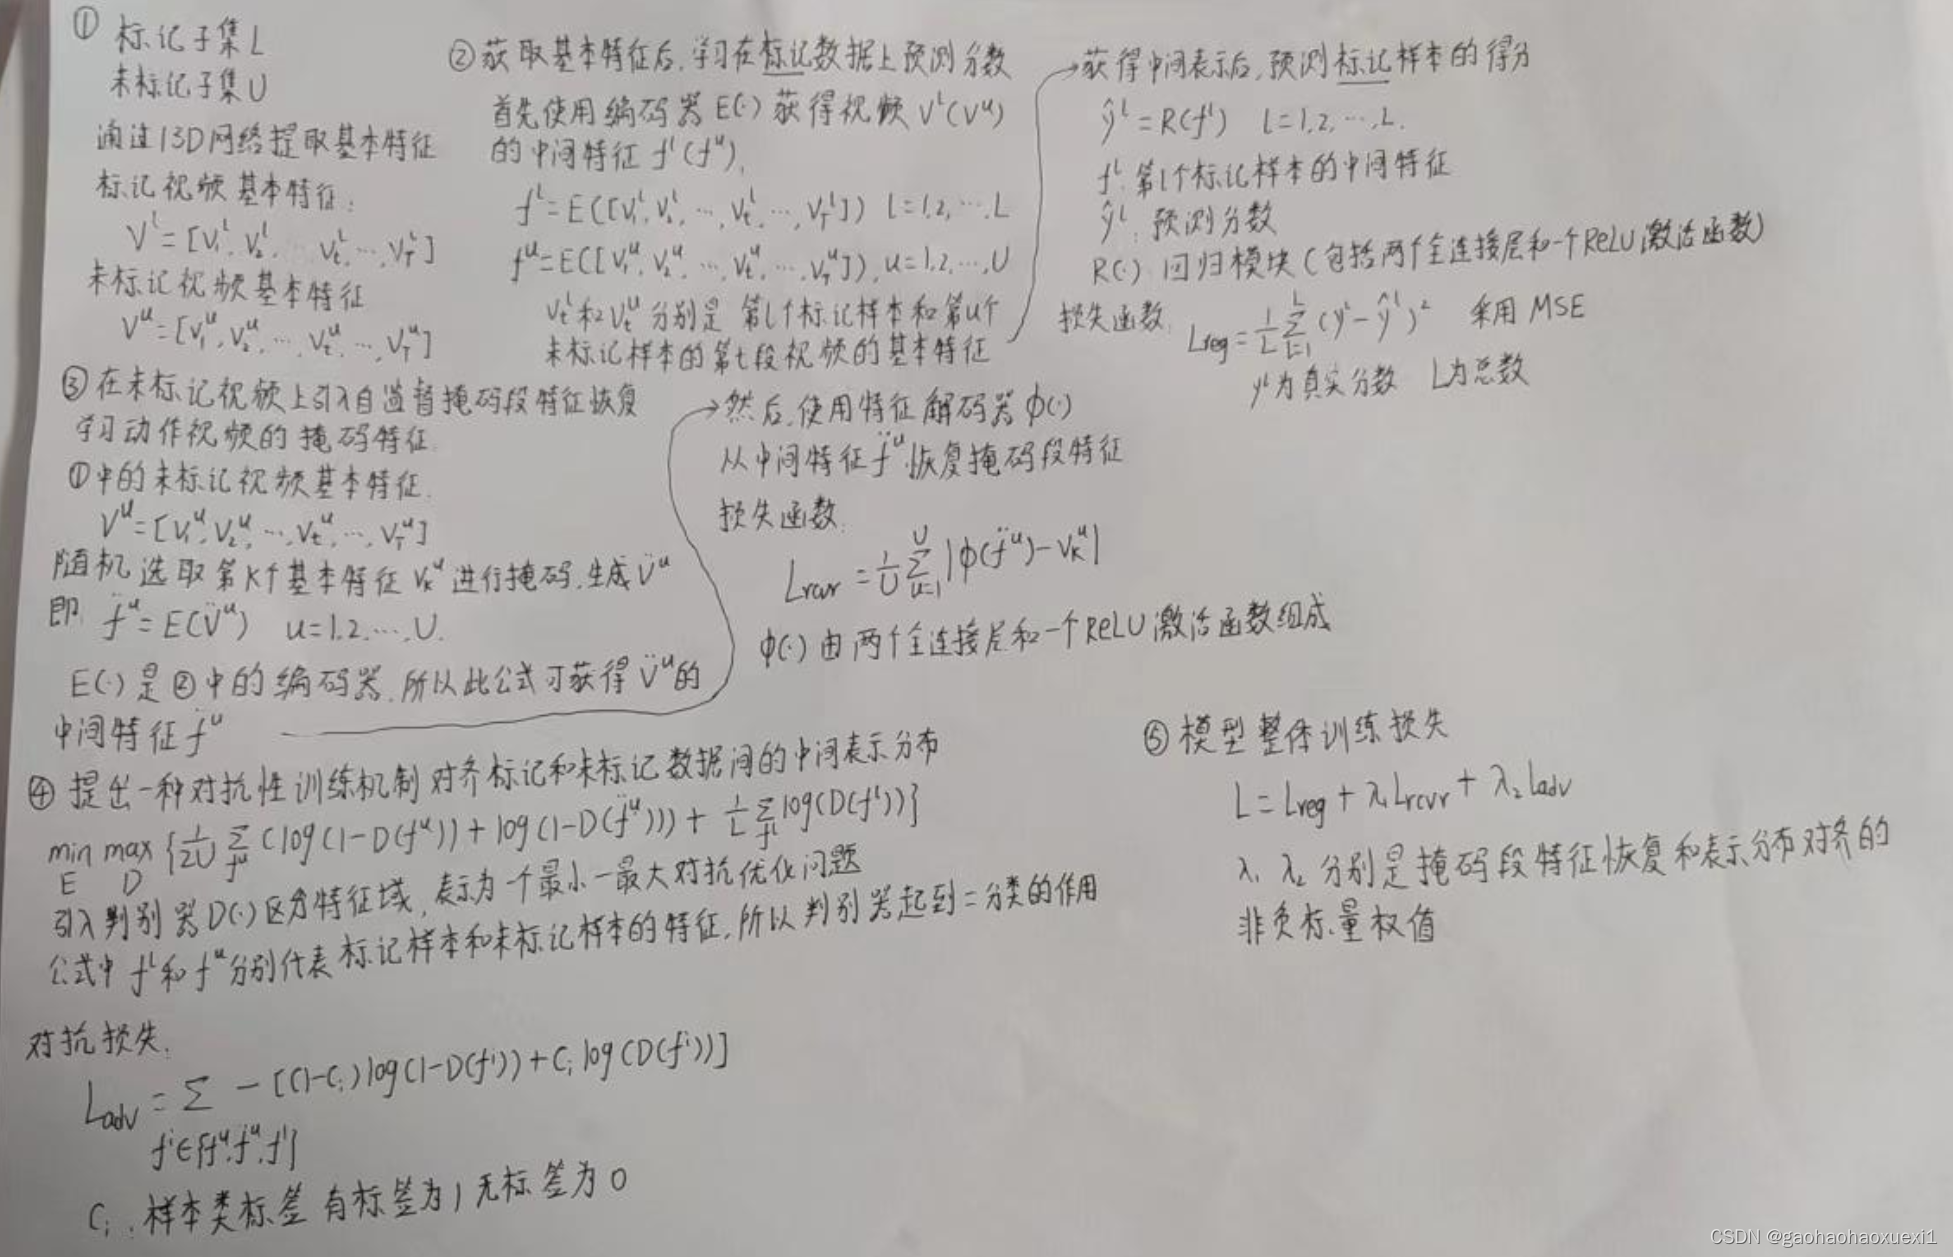 ① 标记子集L
未标记子集U
通过I3D网络提取基本特征
标记视频基本特征:
Vˡ=[V₁ˡ, V₂ˡ, … Vₜˡ, …, V_Tˡ]
未标记视频基本特征
Vᵘ=[V₁ᵘ, V₂ᵘ, …, Vₜᵘ, …, V_Tᵘ]
②获取基本特征后,学习在标记数据上预测分数
首先使用编码器E(·)获得视频Vˡ(Vᵘ)
的中间特征fˡ(fᵘ),
fˡ=E([V₁ˡ, V₂ˡ, …, Vₜˡ, …, V_Tˡ]) l=1,2,…,L
fᵘ=E([V₁ᵘ, V₂ᵘ, …, Vₜᵘ, …, V_Tᵘ]), u=1,2,…,U
Vₜˡ和Vₜᵘ分别是第l个标记样本和第u个
未标记样本的第t段视频的基本特征
→获得中间表示后,预测标记样本的得分
ŷˡ=R(fˡ) l=1,2,…,L.
fˡ:第l个标记样本的中间特征
ŷˡ:预测分数
R(·):回归模块(包括两个全连接层和一个ReLU激活函数)
损失函数: Lreg=1/L Σ_{l=1}^{L}(yˡ-ŷˡ)² 采用MSE
yˡ为真实分数 L为总数
③在未标记视频上引入自监督掩码段特征恢复
学习动作视频的掩码特征.
①中的未标记视频基本特征.
Vᵘ=[V₁ᵘ, V₂ᵘ, …, Vₜᵘ, …, V_Tᵘ]
随机选取第K个基本特征V_Kᵘ进行掩码,生成V̈ᵘ
即: f̈ᵘ=E(V̈ᵘ) u=1,2,…,U.
E(·)是②中的编码器,所以此公式可获得V̈ᵘ的
中间特征f̈ᵘ
→然后,使用特征解码器ϕ(·)
从中间特征f̈ᵘ恢复掩码段特征
损失函数:
Lrcvr=1/U Σ_{u=1}^{U}|ϕ(f̈ᵘ)-V_Kᵘ|
ϕ(·)由两个全连接层和一个ReLU激活函数组成
④提出一种对抗性训练机制对齐标记和未标记数据间的中间表示分布
min_E max_D {1/2U Σ_{fᵘ}(log(1-D(fᵘ))+log(1-D(f̈ᵘ)))+1/L Σ_{fˡ}log(D(fˡ))}
引入判别器D(·)区分特征域,表示为一个最小一最大对抗优化问题
公式中fˡ和fᵘ分别代表标记样本和未标记样本的特征,所以判别器起到二分类的作用
对抗损失:
Ladv=Σ_{fⁱ∈{fᵘ,f̈ᵘ,fˡ}} -[(1-Cᵢ)log(1-D(fⁱ))+Cᵢlog(D(fⁱ))]
Cᵢ:样本类标签 有标签为1 无标签为0
⑤模型整体训练损失
L=Lreg+λ₁Lrcvr+λ₂Ladv
λ₁ λ₂分别是掩码段特征恢复和表示分布对齐的
非负标量权值
CSDN @gaohaohaoxuexi1